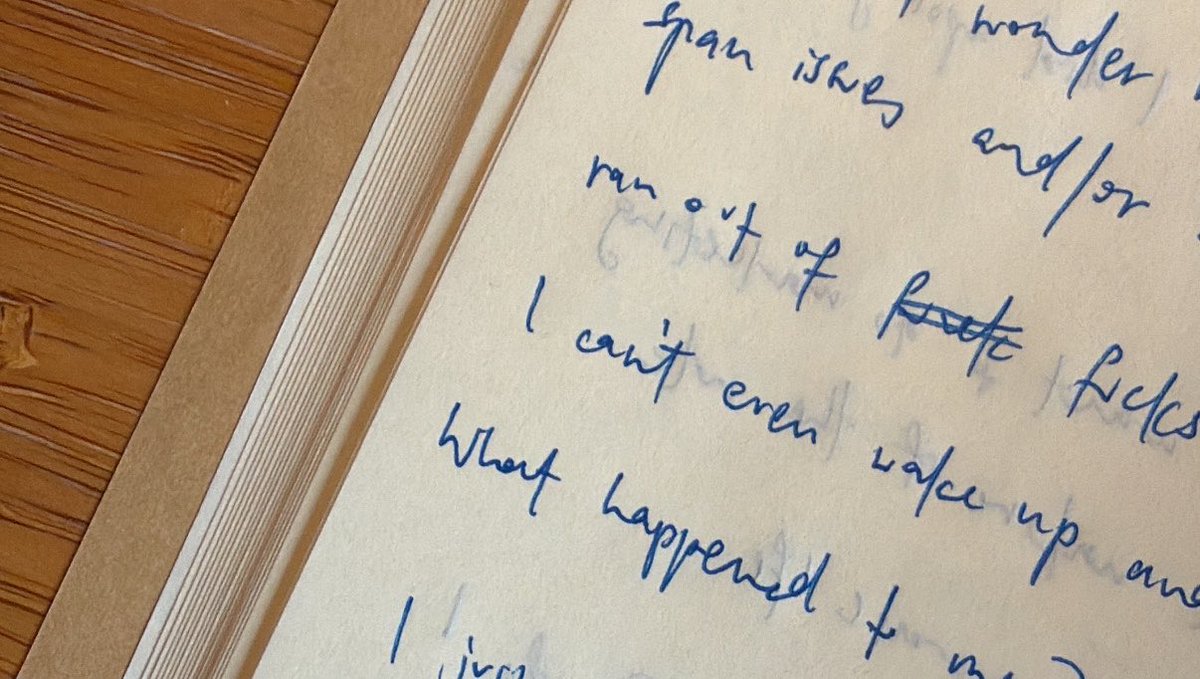 wonder
span issues and/or
ran out of fucks
I can't even wake up and
What happened to me?
I just